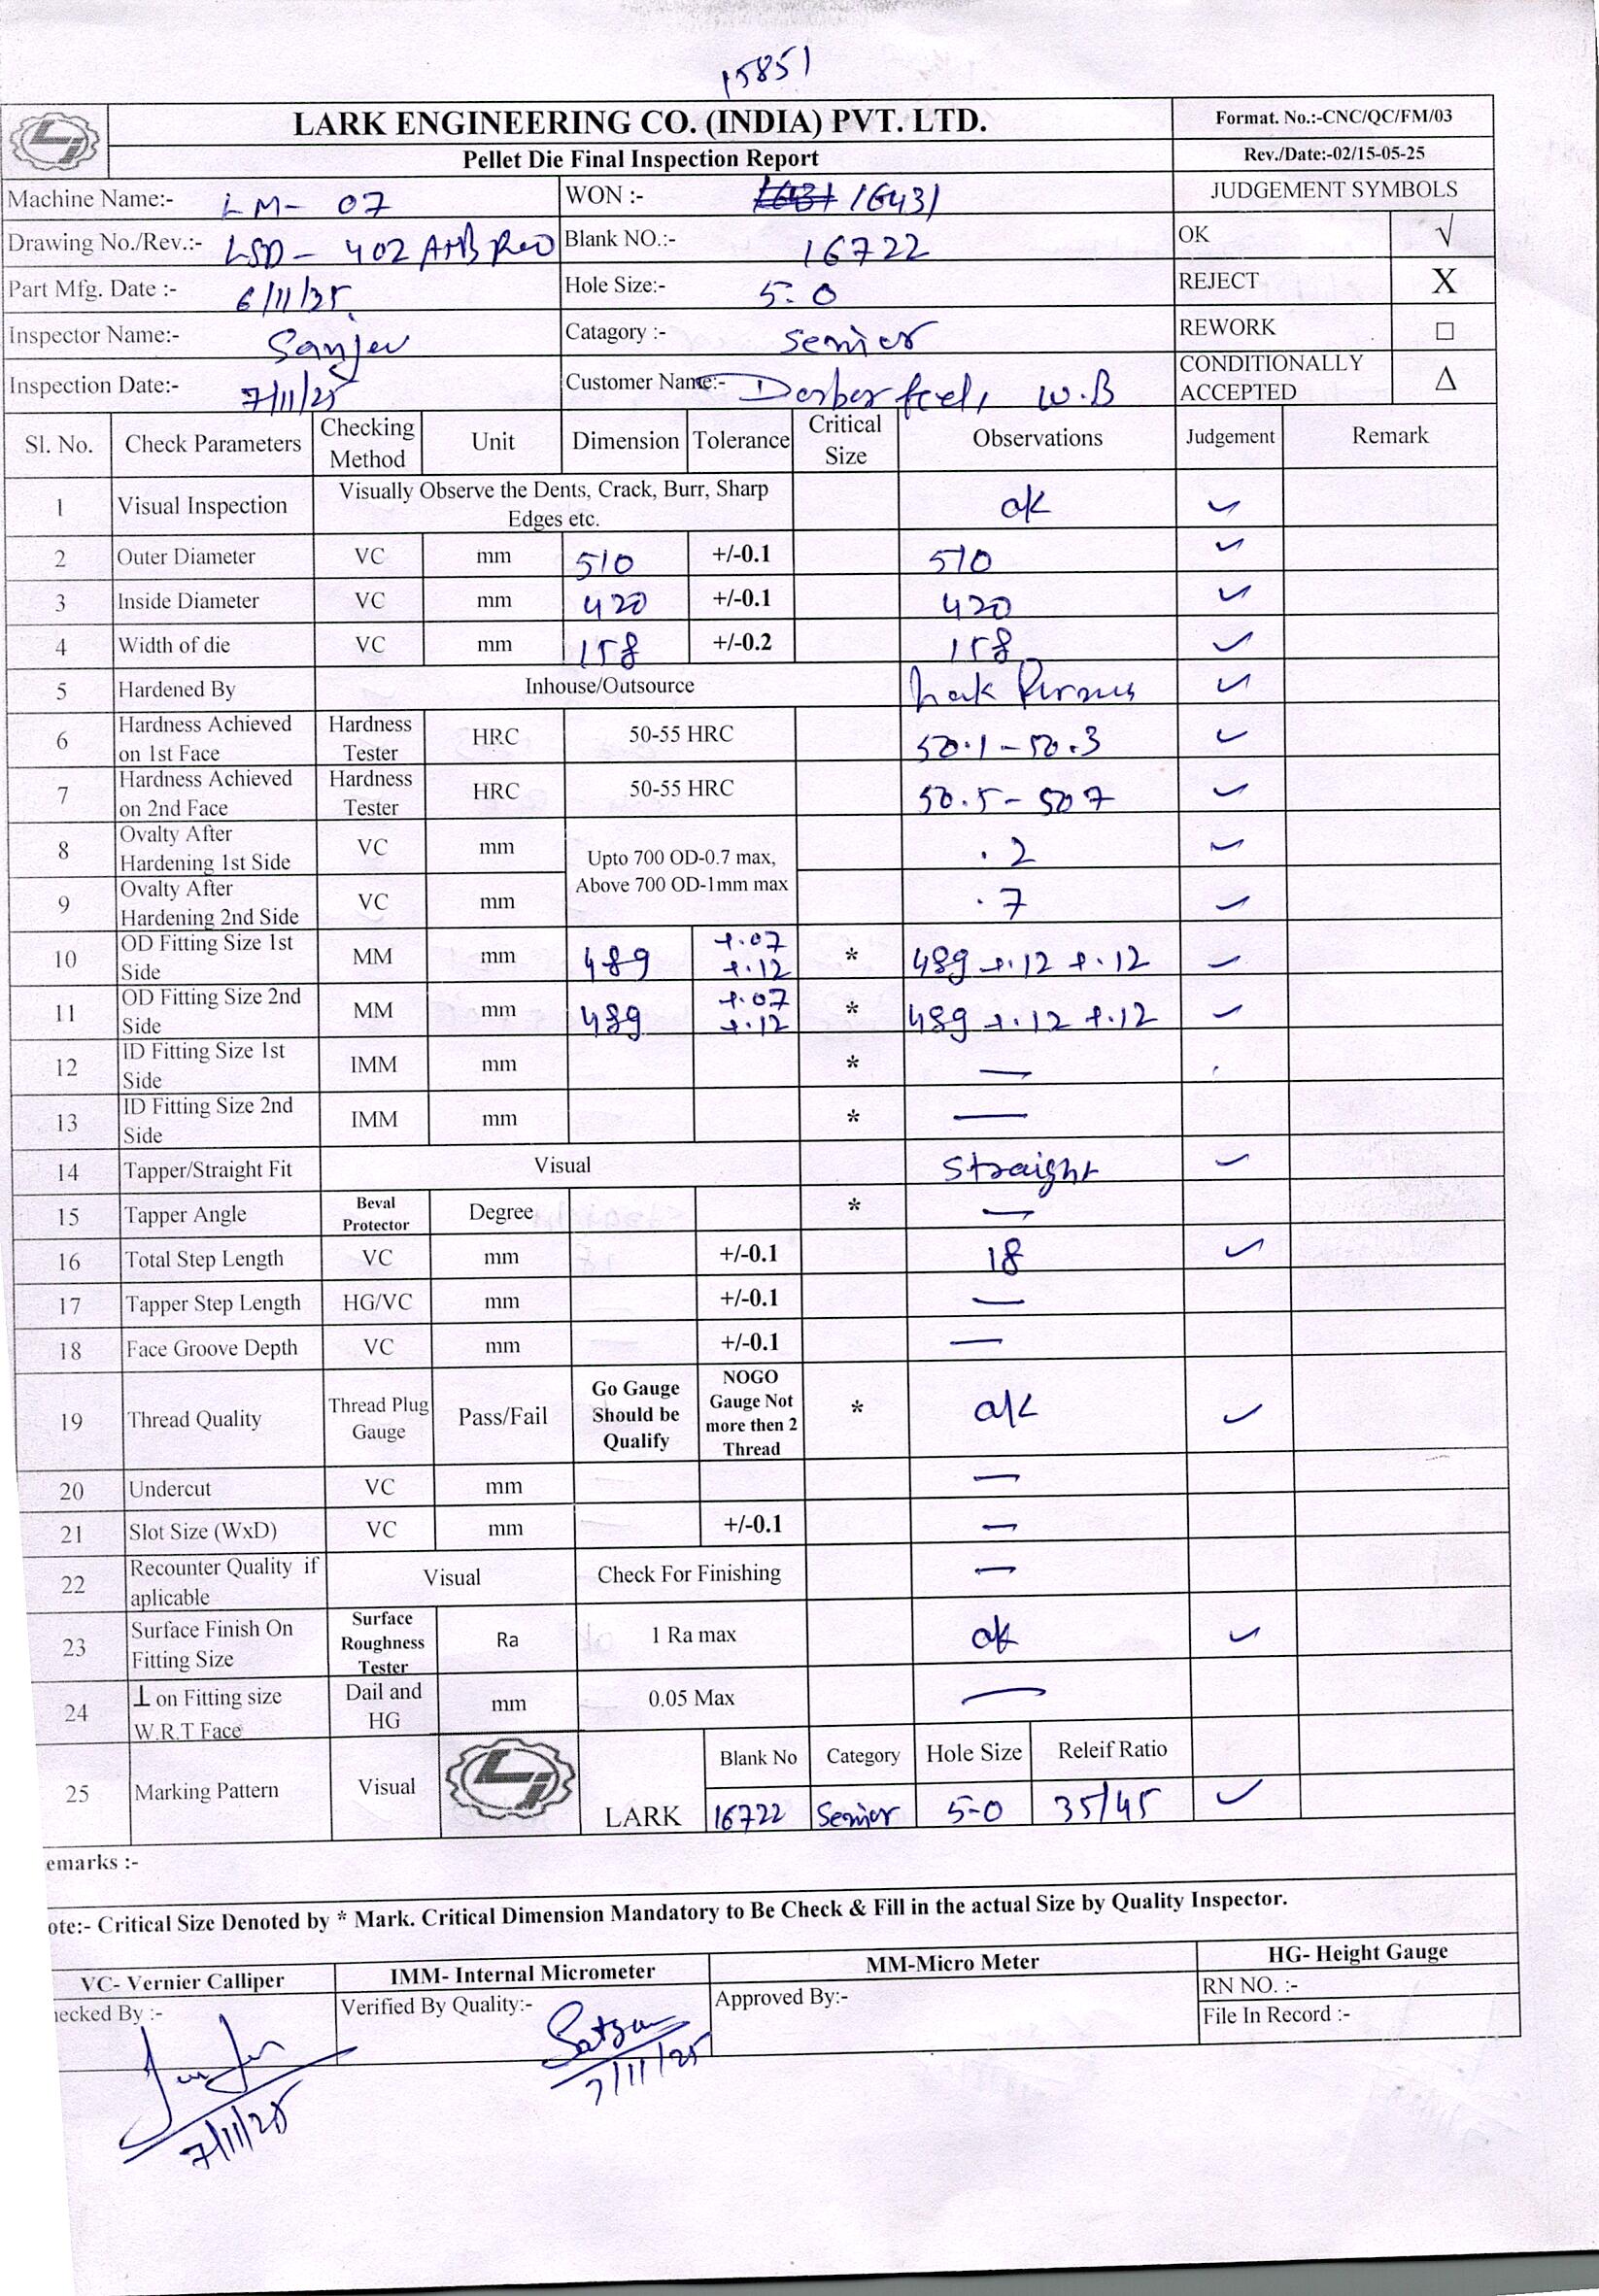 15851
LARK ENGINEERING CO. (INDIA) PVT. LTD. Format. No.:-CNC/QC/FM/03
Pellet Die Final Inspection Report Rev./Date:-02/15-05-25
Machine Name:- LM- 07 WON :- 16431 16431 JUDGEMENT SYMBOLS
Drawing No./Rev.:- LSD- 402 Blank NO.:- 16722 OK √
Part Mfg. Date :- 6/11/25 Hole Size:- 5.0 REJECT X
Inspector Name:- Sanjev Catagory :- Senior REWORK □
Inspection Date:- 7/11/25 Customer Name:- W.B CONDITIONALLY ACCEPTED Δ
Sl. No. Check Parameters Checking Method Unit Dimension Tolerance Critical Size Observations Judgement Remark
1 Visual Inspection Visually Observe the Dents, Crack, Burr, Sharp Edges etc. ok ✓
2 Outer Diameter VC mm 510 +/-0.1 510 ✓
3 Inside Diameter VC mm 420 +/-0.1 420 ✓
4 Width of die VC mm 158 +/-0.2 158 ✓
5 Hardened By Inhouse/Outsource ✓
6 Hardness Achieved on 1st Face Hardness Tester HRC 50-55 HRC 50.1-50.3 ✓
7 Hardness Achieved on 2nd Face Hardness Tester HRC 50-55 HRC 50.5-507 ✓
8 Ovalty After Hardening 1st Side VC mm Upto 700 OD-0.7 max, Above 700 OD-1mm max .2 ✓
9 Ovalty After Hardening 2nd Side VC mm .7 ✓
10 OD Fitting Size 1st Side MM mm 489 +.07 +.12 * 489 +.12 +.12 ✓
11 OD Fitting Size 2nd Side MM mm 489 +.07 +.12 * 489 +.12 +.12 ✓
12 ID Fitting Size 1st Side IMM mm * —
13 ID Fitting Size 2nd Side IMM mm * —
14 Tapper/Straight Fit Visual Straight ✓
15 Tapper Angle Beval Protector Degree * —
16 Total Step Length VC mm +/-0.1 18 ✓
17 Tapper Step Length HG/VC mm +/-0.1 —
18 Face Groove Depth VC mm +/-0.1 —
19 Thread Quality Thread Plug Gauge Pass/Fail Go Gauge Should be Qualify NOGO Gauge Not more then 2 Thread * ok ✓
20 Undercut VC mm —
21 Slot Size (WxD) VC mm +/-0.1 —
22 Recounter Quality if aplicable Visual Check For Finishing —
23 Surface Finish On Fitting Size Surface Roughness Tester Ra 1 Ra max ok ✓
24 ⊥ on Fitting size W.R.T Face Dail and HG mm 0.05 Max —
25 Marking Pattern Visual LARK Blank No Category Hole Size Releif Ratio
16722 Senior 5-0 35/45 ✓
emarks :-
ote:- Critical Size Denoted by * Mark. Critical Dimension Mandatory to Be Check & Fill in the actual Size by Quality Inspector.
VC- Vernier Calliper IMM- Internal Micrometer MM-Micro Meter HG- Height Gauge
ecked By :- Verified By Quality:- Approved By:- RN NO. :-
File In Record :-
7/11/25
7/11/25